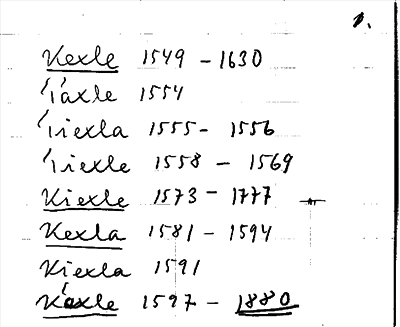 1.
Kexle 1549 – 1630
Käxle 1554
Kiexla 1555 – 1556
Kiexle 1558 – 1569
Kiexle 1573 – 1777
Kexla 1581 – 1594
Kiexla 1591
Käxle 1597 – 1880